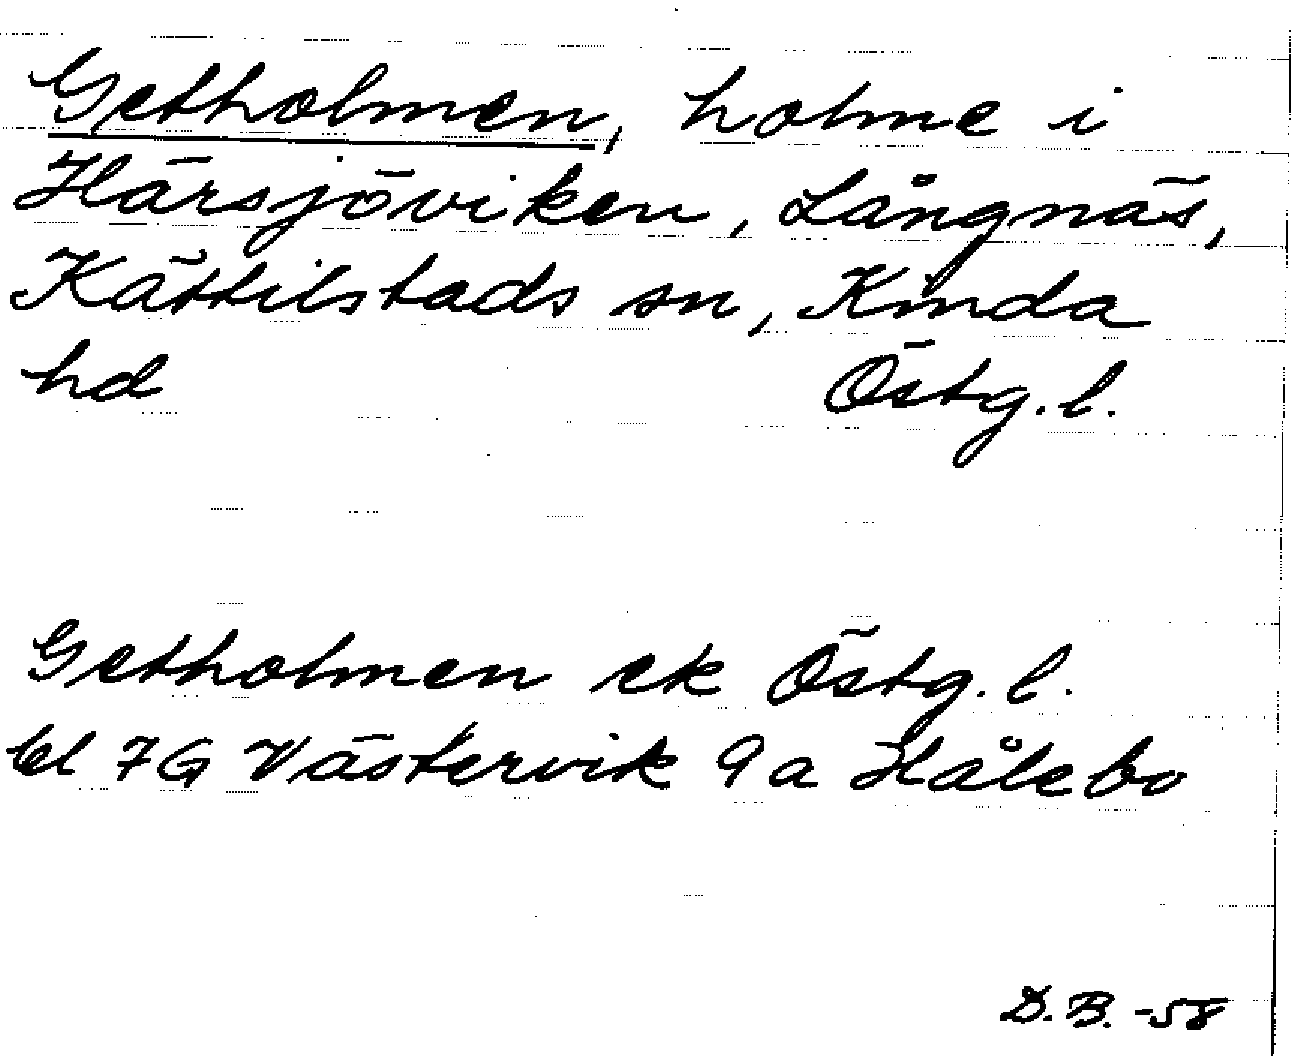 Getholmen, holme i
Härsjöviken, Långnäs,
Kättilstads sn, Kinda
hd Östg. l.
Getholmen ek Östg. l.
bl 7G Västervik 9a Hålebo
D. B. -58